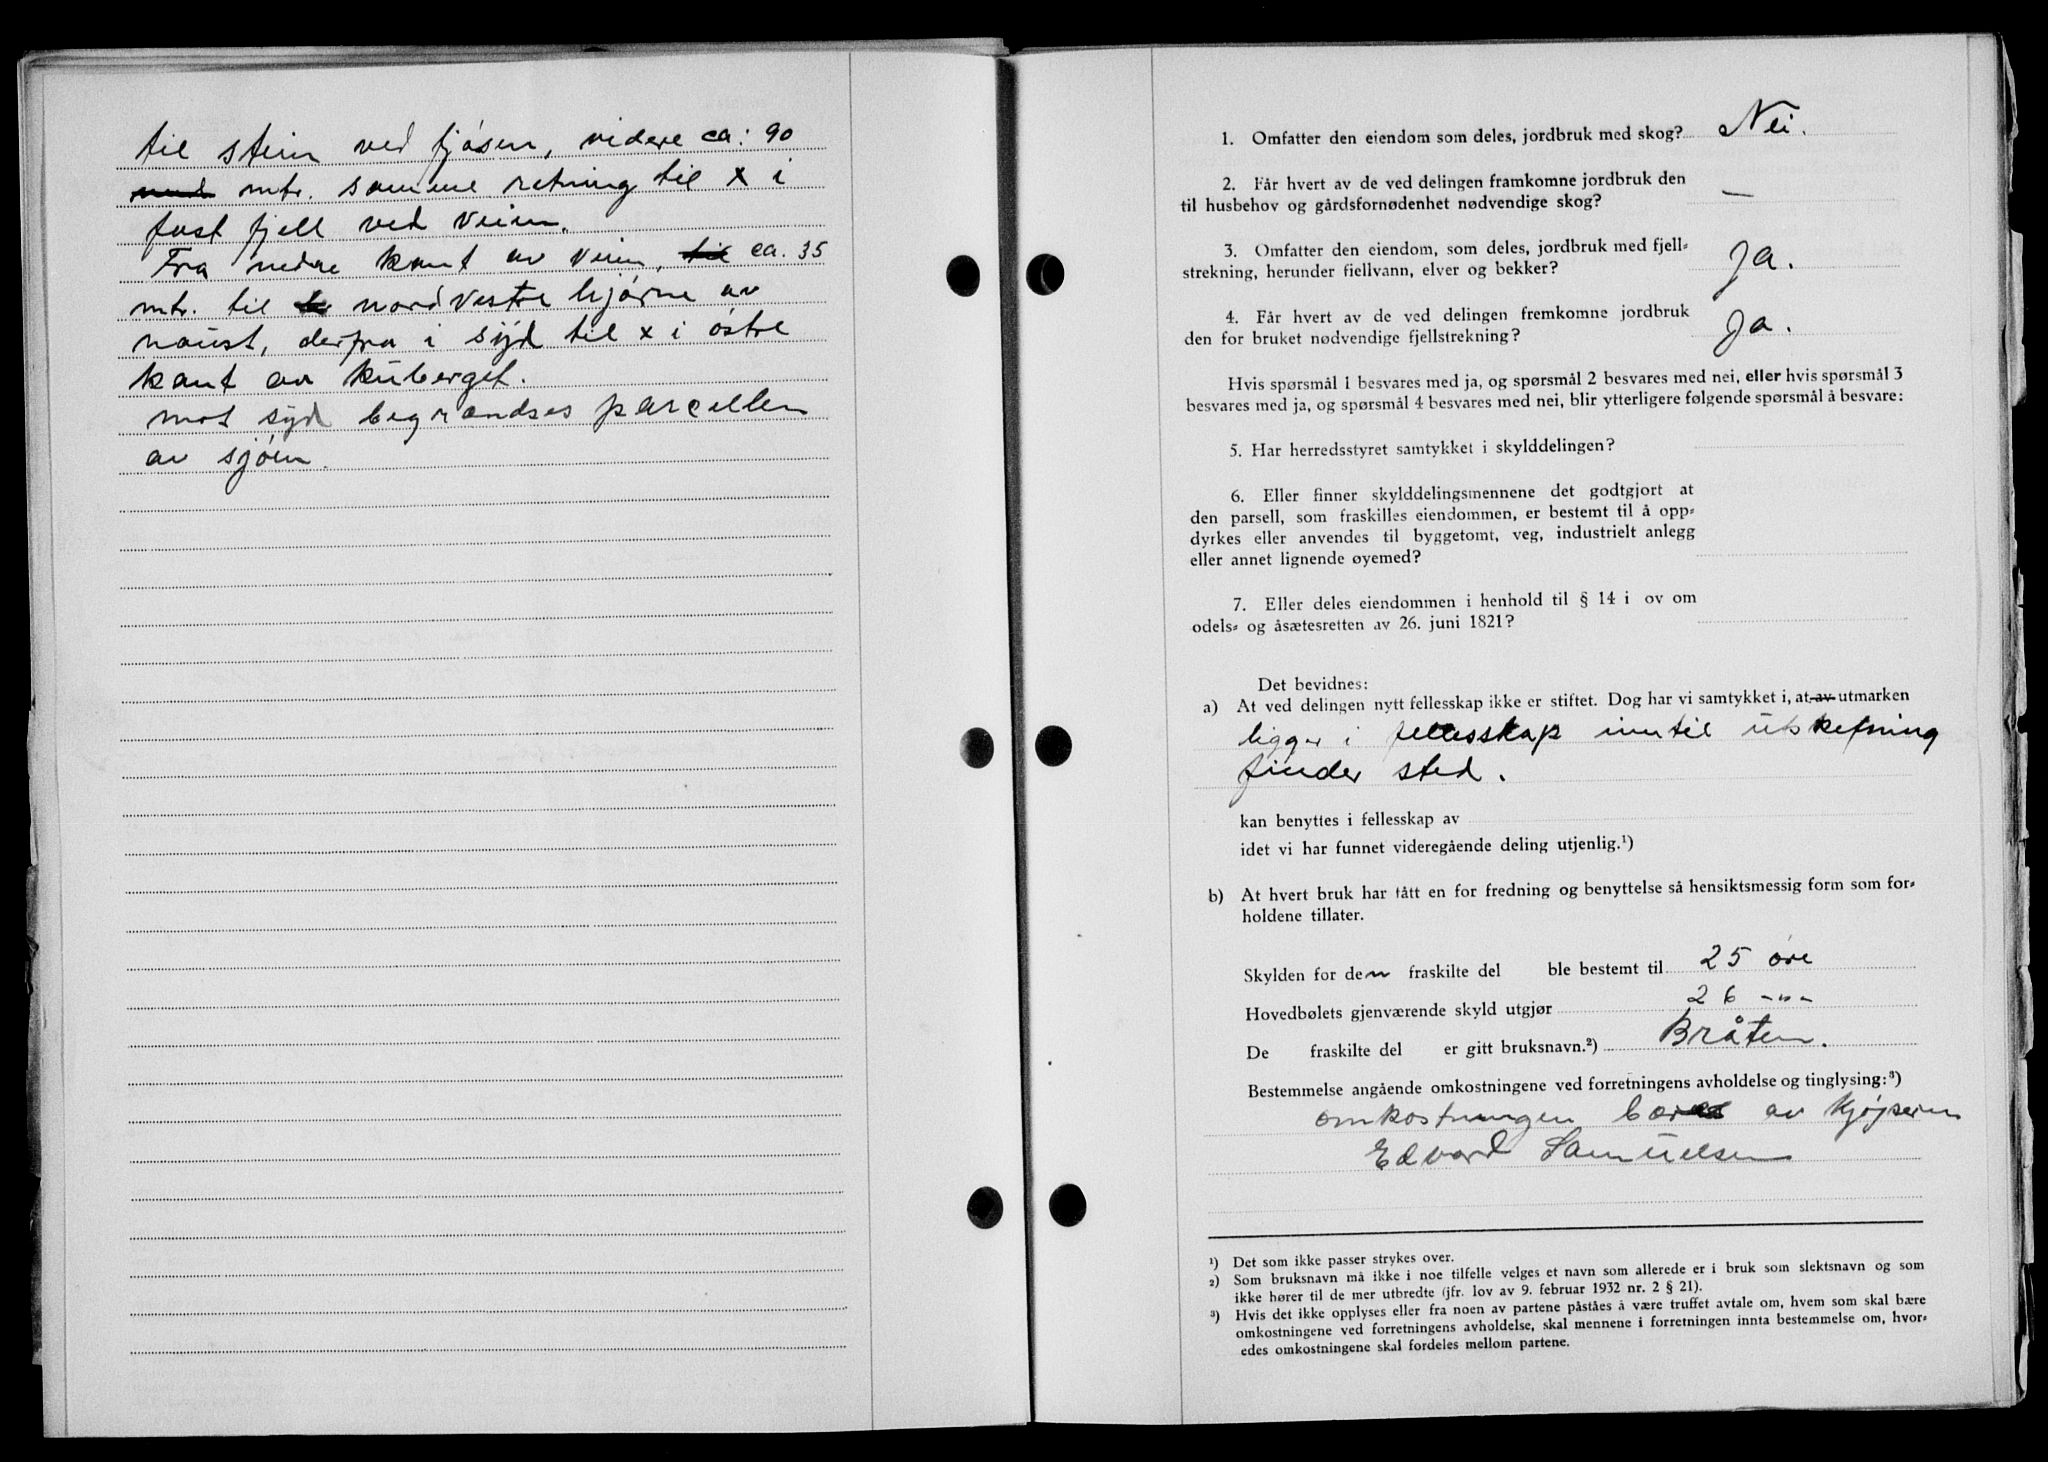 til stein ved fjøsen, videre ca: 90
mtr. samme retning til x i
fast fjell ved veien.
Fra nedre kant av veien, til ca. 35
mtr. til nordvestre hjørne av
naust, derfra i syd til x i østre
kant av Kuberget.
mot syd begrændses parcellen
av sjøen.
1. Omfatter den eiendom som deles, jordbruk med skog? Nei.
2. Får hvert av de ved delingen framkomne jordbruk den
til husbehov og gårdsfornødenhet nødvendige skog? —
3. Omfatter den eiendom, som deles, jordbruk med fjell-
strekning, herunder fjellvann, elver og bekker? Ja.
4. Får hvert av de ved delingen fremkomne jordbruk
den for bruket nødvendige fjellstrekning? Ja.
Hvis spørsmål 1 besvares med ja, og spørsmål 2 besvares med nei, eller hvis spørsmål 3
besvares med ja, og spørsmål 4 besvares med nei, blir ytterligere følgende spørsmål å besvare:
5. Har herredsstyret samtykket i skylddelingen?
6. Eller finner skylddelingsmennene det godtgjort at
den parsell, som fraskilles eiendommen, er bestemt til å opp-
dyrkes eller anvendes til byggetomt, veg, industrielt anlegg
eller annet lignende øyemed?
7. Eller deles eiendommen i henhold til § 14 i ov om
odels- og åsætesretten av 26. juni 1821?
Det bevidnes:
a) At ved delingen nytt fellesskap ikke er stiftet. Dog har vi samtykket i, at av utmarken
ligger i fellesskap inntil utskeftning
finder sted.
kan benyttes i fellesskap av
idet vi har funnet videregående deling utjenlig.¹)
b) At hvert bruk har fått en for fredning og benyttelse så hensiktsmessig form som for-
holdene tillater.
Skylden for den fraskilte del ble bestemt til 25 øre
Hovedbølets gjenværende skyld utgjør 26 -"-
De fraskilte del er gitt bruksnavn.²) Bråten.
Bestemmelse angående omkostningene ved forretningens avholdelse og tinglysing:³)
omkostningen bæres av kjøperen
Edvard Samuelsen
¹) Det som ikke passer strykes over.
²) Som bruksnavn må ikke i noe tilfelle velges et navn som allerede er i bruk som slektsnavn og som
ikke hører til de mer utbredte (jfr. lov av 9. februar 1932 nr. 2 § 21).
³) Hvis det ikke opplyses eller fra noen av partene påståes å være truffet avtale om, hvem som skal bære
omkostningene ved forretningens avholdelse, skal mennene i forretningen innta bestemmelse om, hvor-
edes omkostningene skal fordeles mellom partene.